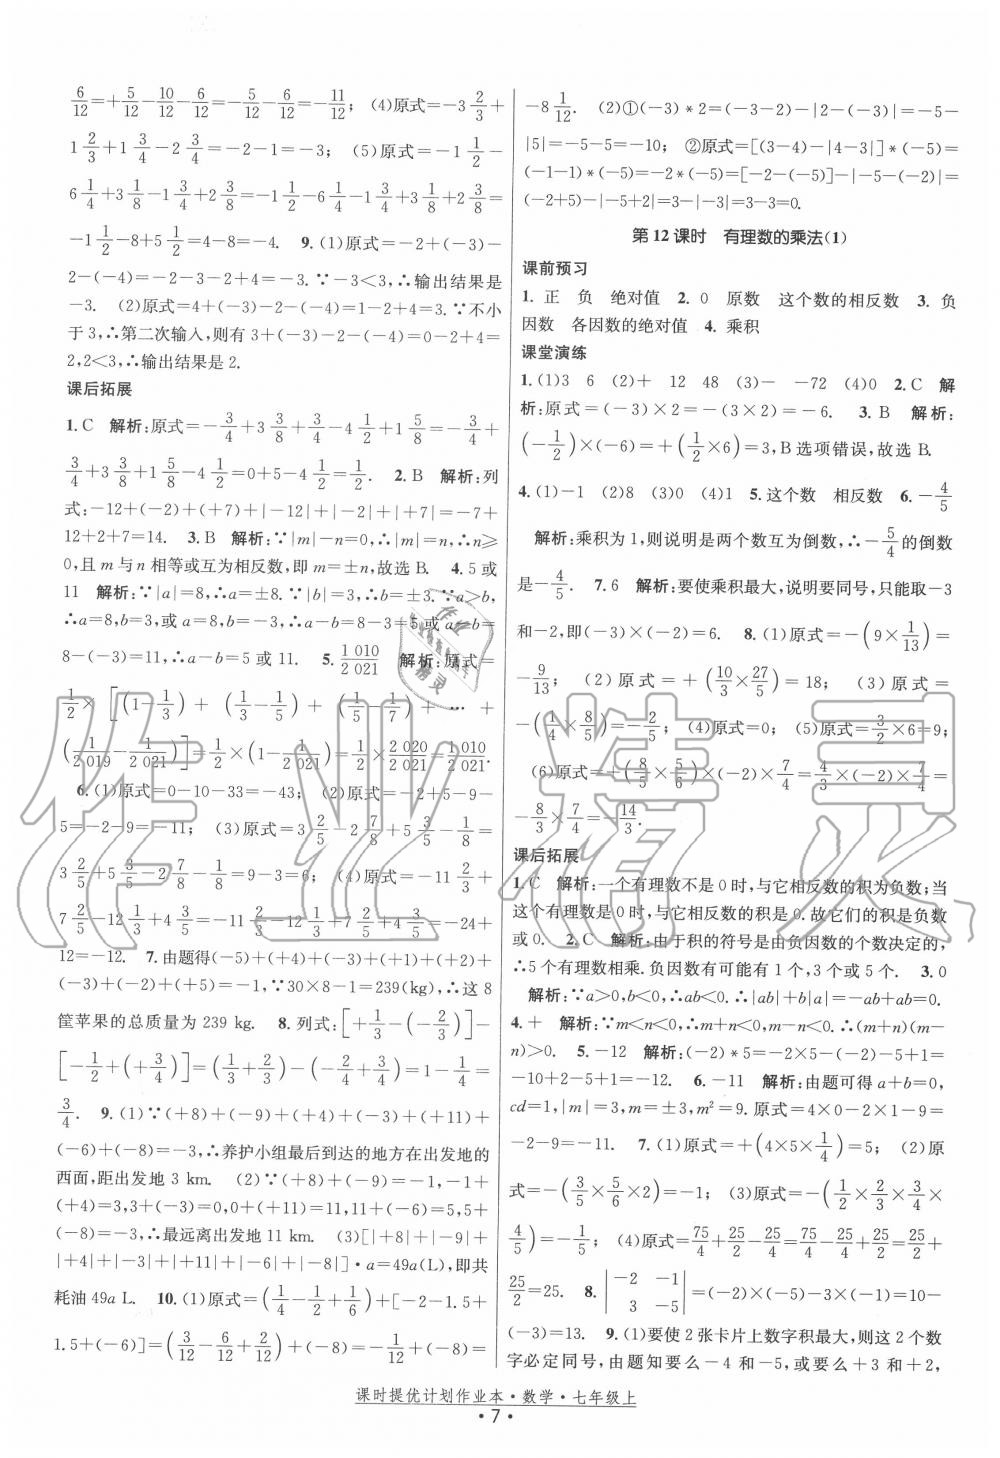 6/12=+5/12-10/12-6/12=-5/12-6/12=-11/12; (4)原式=-3 2/3+
1 2/3+1 3/4-2 3/4=-2-1=-3; (5)原式=-1 1/2-
6 1/4+3 1/8-1 3/4+2 3/8=-1 1/2-6 1/4-1 3/4+3 1/8+2 3/8=
-1 1/2-8+5 1/2=-4. 9.(1)原式=-2+(-3)-
2-(-4)=-2-3-2+4=-3.∵-3<3,∴输出结果是
-3. (2)原式=4+(-3)-2-(-4)=3.∵不小
于3,∴第二次输入,则有3+(-3)-2-(-4)=0-2+4=
2,2<3,∴输出结果是2.
课后拓展
1.C 解析:原式=-3/4+3 3/8+3/4-4 1/2+1 5/8=-3/4+
3/4+3 3/8+1 5/8-4 1/2=0+5-4 1/2=1/2. 2.B 解析:列
式:-12+(-2)+(+7)+|-12|+|-2|+|+7|=-7+
12+2+7=14. 3.B 解析:∵|m|-n=0,∴|m|=n,∴n≥
0,且m与n相等或互为相反数,即|m|=n,故选B. 4.5或
11 解析:∵|a|=8,∴a=±8.∵|b|=3,∴b=±3.∵a>b,
∴a=8,b=3,或a=8,b=-3,∴a-b=8-3=5或a-b=
8-(-3)=11,∴a-b=5或11. 5.1 010/2 021 解析:原式=
1/2×[(1-1/3)+(1/3-1/5)+(1/5-1/7)+…+
(1/2 019-1/2 021)]=1/2×(1-1/2 021)=1/2×2 020/2 021=1 010/2 021.
6.(1)原式=0-10-33=-43; (2)原式=-2+5-9-
5=-2-9=-11; (3)原式=3 2/5-2 7/8+5 3/5-1/8=
3 2/5+5 3/5-2 7/8-1/8=9-3=6; (4)原式=-11 2/3+
7 2/5-12 1/3+4 3/5=-11 2/3-12 1/3+7 2/5+4 3/5=-24+
12=-12. 7.由题得(-5)+(+4)+(+1)+(+2)+
(-3)+(-2)+(+5)=-1,∵30×8-1=239(kg),∴这8
筐苹果的总质量为239 kg. 8.列式:[+1/3-(-2/3)]-
[-1/2+(+3/4)]=(1/3+2/3)-(-2/4+3/4)=1-1/4=
3/4. 9.(1)∵(+8)+(-9)+(+4)+(-3)+(+11)+
(-6)+(-8)=-3,∴养护小组最后到达的地方在出发地的
西面,距出发地3 km. (2)∵(+8)+(-9)=-1,-1+
(+4)=3,3+(-3)=0,0+(+11)=11,11+(-6)=5,5+
(-8)=-3,∴最远离出发地11 km. (3)[|+8|+|-9|+
|+4|+|-3|+|+11|+|-6|+|-8|]·a=49a(L),即共
耗油49a L. 10.(1)原式=(1/4-1/2+1/6)+[-2-1.5+
1.5+(-6)]=(3/12-6/12+2/12)+(-8)=-1/12+(-8)=
-8 1/12. (2)①(-3)*2=(-3-2)-|2-(-3)|=-5-
|5|=-5-5=-10; ②原式=[(3-4)-|4-3|]*(-5)=
(-1-1)*(-5)=-2*(-5)=[-2-(-5)]-|-5-(-2)|=
(-2+5)-|-5+2|=3-|-3|=3-3=0.
第12课时 有理数的乘法(1)
课前预习
1.正 负 绝对值 2.0 原数 这个数的相反数 3.负
因数 各因数的绝对值 4.乘积
课堂演练
1.(1)3 6 (2)+ 12 48 (3)- -72 (4)0 2.C 解
析:原式=(-3)×2=-(3×2)=-6. 3.B 解析:
(-1/2)×(-6)=+(1/2×6)=3,B选项错误,故选B.
4.(1)-1 (2)8 (3)0 (4)1 5.这个数 相反数 6.-4/5
解析:乘积为1,则说明是两个数互为倒数,∴-5/4的倒数
是-4/5. 7.6 解析:要使乘积最大,说明要同号,只能取-3
和-2,即(-3)×(-2)=6. 8.(1)原式=-(9×1/13)=
-9/13; (2)原式=+(10/3×27/5)=18; (3)原式=
-(1/4×8/5)=-2/5; (4)原式=0; (5)原式=3/2×6=9;
(6)原式=+(8/5×5/6)×(-2)×7/4=4/3×(-2)×7/4=
-8/3×7/4=-14/3.
课后拓展
1.C 解析:一个有理数不是0时,与它相反数的积为负数;当
这个有理数是0时,与它相反数的积是0.故它们的积是负数
或0. 2.C 解析:由于积的符号是由负因数的个数决定的,
∴5个有理数相乘.负因数有可能有1个,3个或5个. 3.0
解析:∵a>0,b<0,∴ab<0.∴|ab|+ab=-ab+ab=0.
4.+ 解析:∵m<n<0,∴m+n<0,m-n<0.∴(m+n)(m-
n)>0. 5.-12 解析:(-2)*5=-2×5-(-2)-5+1=
-10+2-5+1=-12. 6.-11 解析:由题可得a+b=0,
cd=1,|m|=3,m=±3,m²=9.原式=4×0-2×1-9=
-2-9=-11. 7.(1)原式=+(4×5×1/4)=5; (2)原
式=-(3/5×5/6×2)=-1; (3)原式=-(1/2×2/3×3/4×
4/5)=-1/5; (4)原式=75/4+25/2-25/4=75/4-25/4+25/2=25/2+
25/2=25. 8.|-2 -1
3 -5|=(-2)×(-5)-3×(-1)=10-
(-3)=13. 9.(1)要使2张卡片上数字积最大,则这2个数
字必定同号,由题知要么-4和-5,或要么+3和+2,
课时提优计划作业本·数学·七年级上
·7·
作业精灵